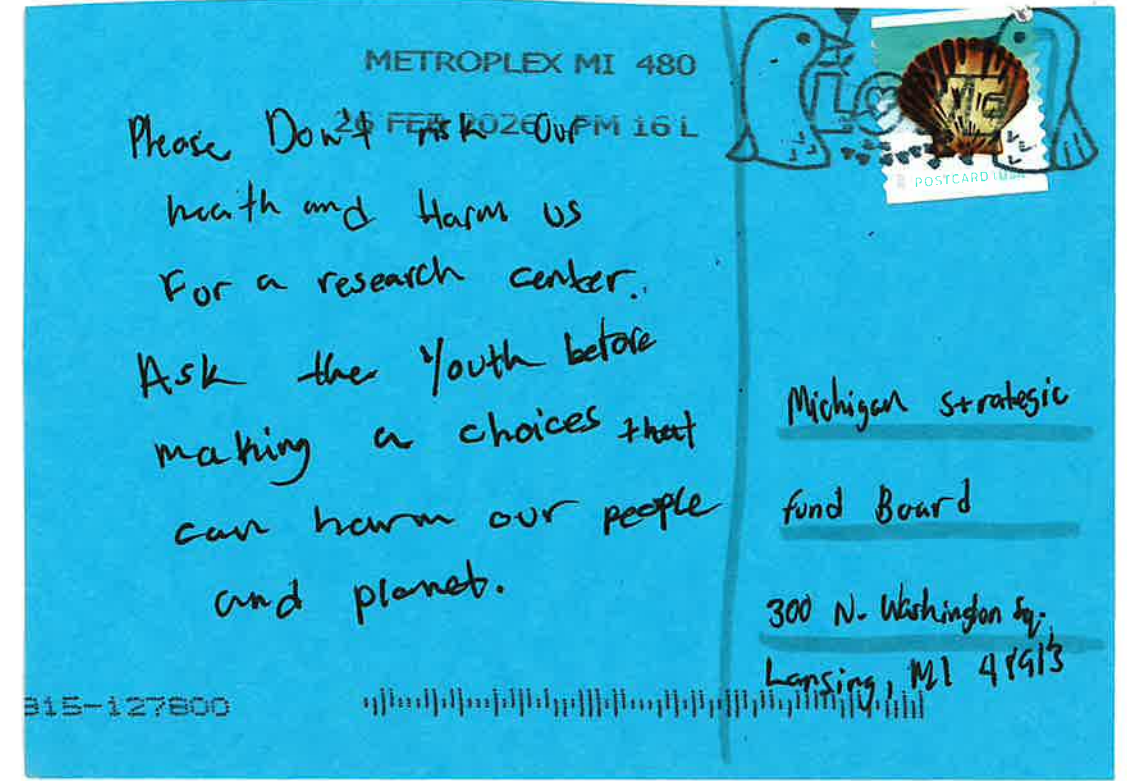 METROPLEX MI 480
26 FEB 2026 PM 16 L
POSTCARD USA
Please Don't risk Our
heath and Harm us
For a research center.
Ask the Youth before
making a choices that
can harm our people
and planet.
Michigan strategic
fund Board
300 N. Washington Sq.
Lansing, MI 48913
815-127800